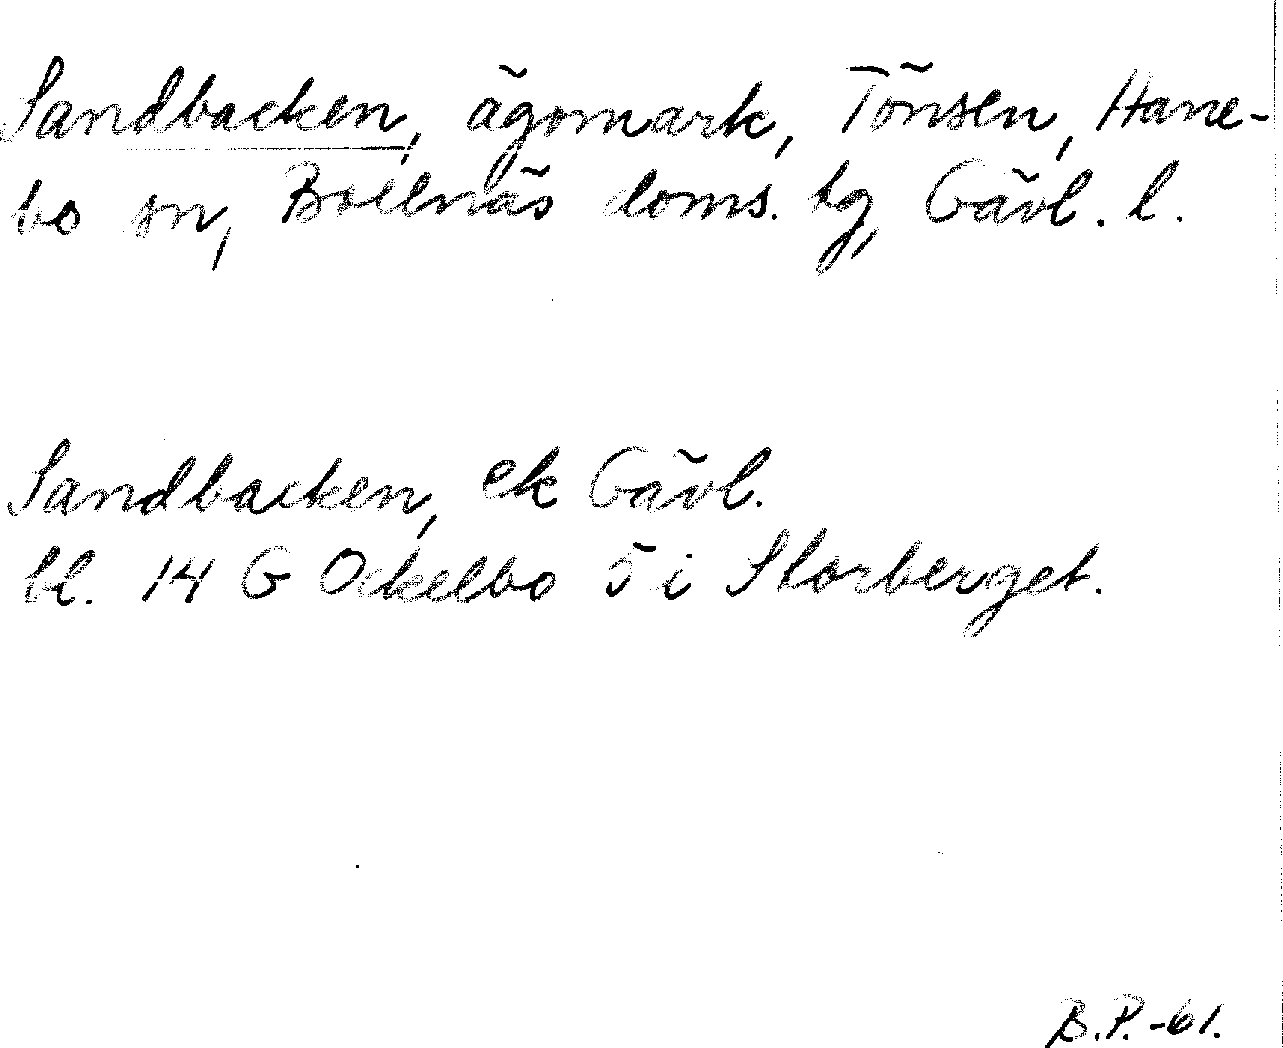 Sandbacken, ägomark, Tönsen, Hane-
bo sn, Bollnäs doms. tg, Gävl. l.
Sandbacken, ek Gävl.
bl. 14 G Ockelbo ö i Storberget.
B.P.-61.